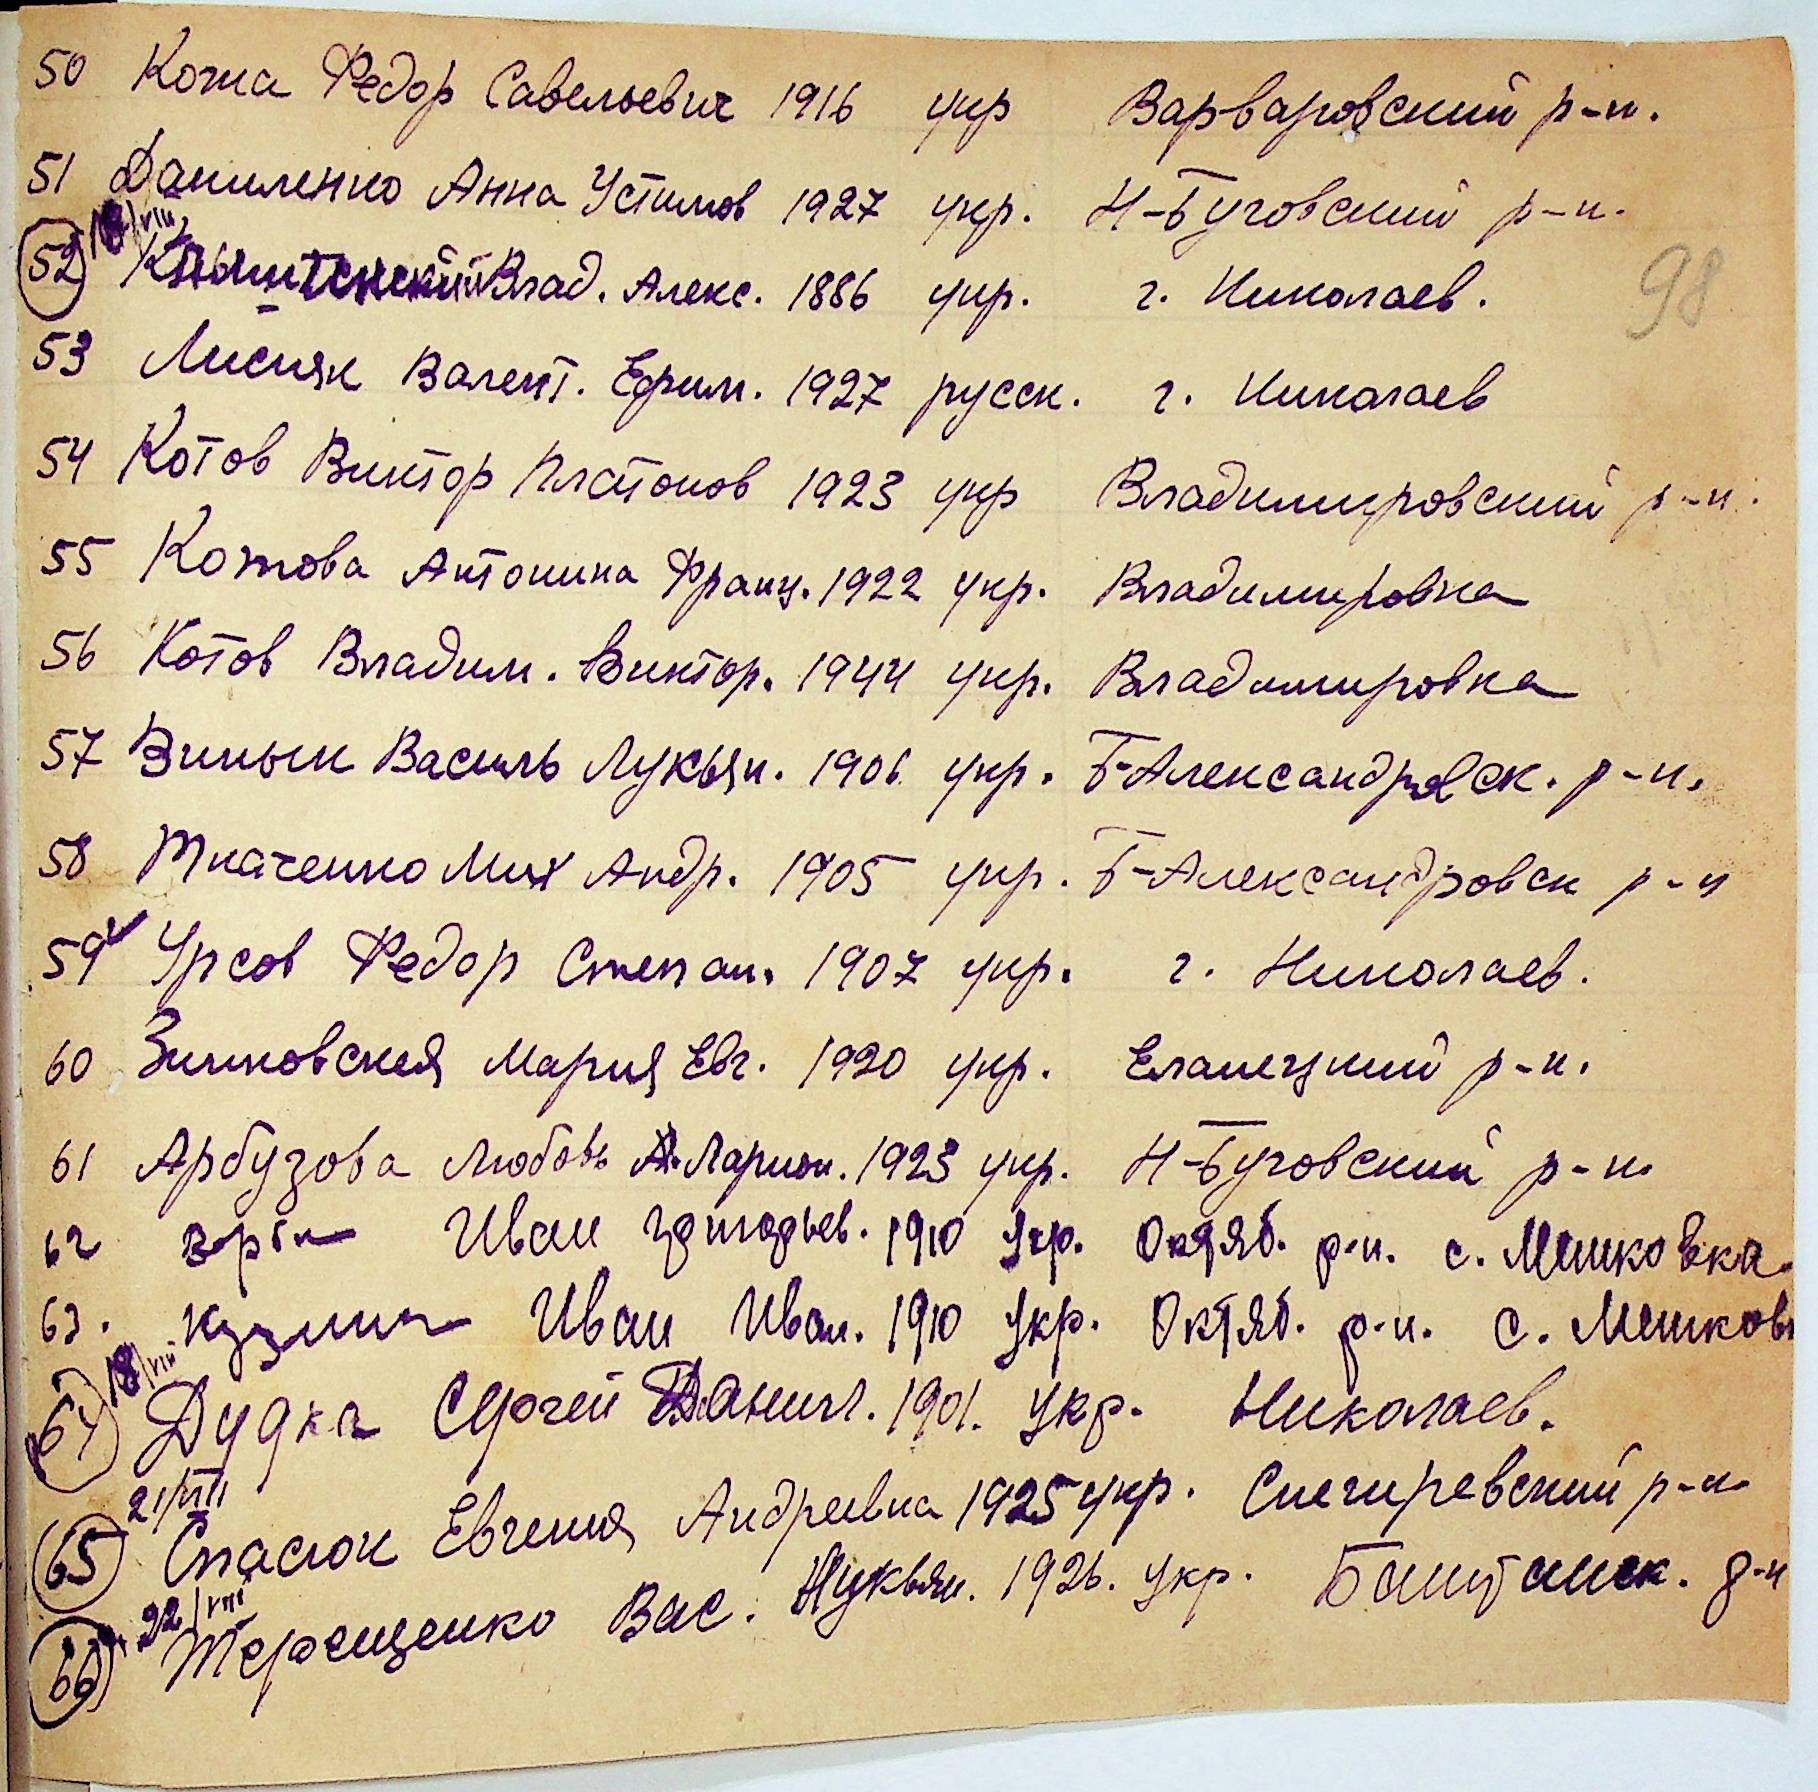 50 Кожа Федор Савельевич 1916 укр Варваровский р-н.
51 Даниленко Анна Устимов 1927 укр. Н-Буговский р-н.
18/VIII
52 Влад. Алекс. 1886 укр. г. Николаев.
98
53 Лисняк Валент. Ефим. 1927 русск. г. Николаев
54 Котов Виктор Платонов 1923 укр Владимировский р-н.
55 Котова Антонина Франц. 1922 укр. Владимировка
56 Котов Владим. Виктор. 1944 укр. Владимировка
57 Зинын Василь Лукьян. 1906 укр. Б-Александровск. р-н.
58 Ткаченко Мих Андр. 1905 укр. Б-Александровск р-н
59 Урсов Федор Степан. 1907 укр. г. Николаев.
60 Зинковская Мария Евг. 1920 укр. Еланецкий р-н.
61 Арбузова Любовь Ларион. 1923 укр. Н-Буговский р-н.
62 Иван Григорьев. 1910 укр. Октяб. р-н. с. Мешковка
63. Кузмин Иван Иван. 1910 укр. Октяб. р-н. с. Мешков
18/VIII
64 Дудка Сергей Данил. 1901. укр. Николаев.
21/VIII
65 Спасюк Евгения Андреевна 1925 укр. Снегиревский р-н
22/VIII
66 Терещенко Вас. Лукьян. 1926. укр. Баштанск. р-н